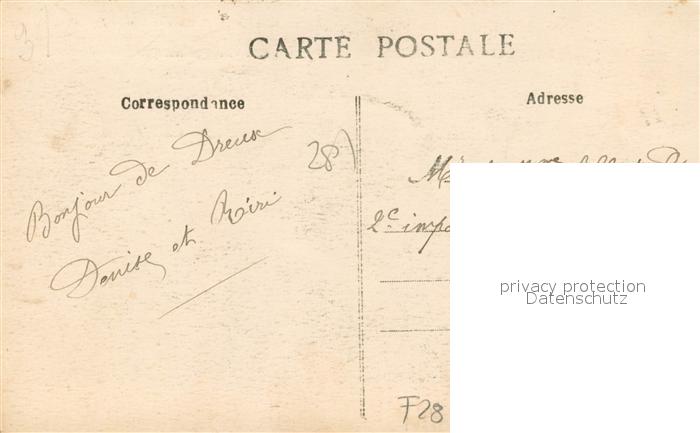 CARTE POSTALE
Correspondance
Adresse
28
Bonjour de Dreux
Denise et Riri
privacy protection
Datenschutz
F28